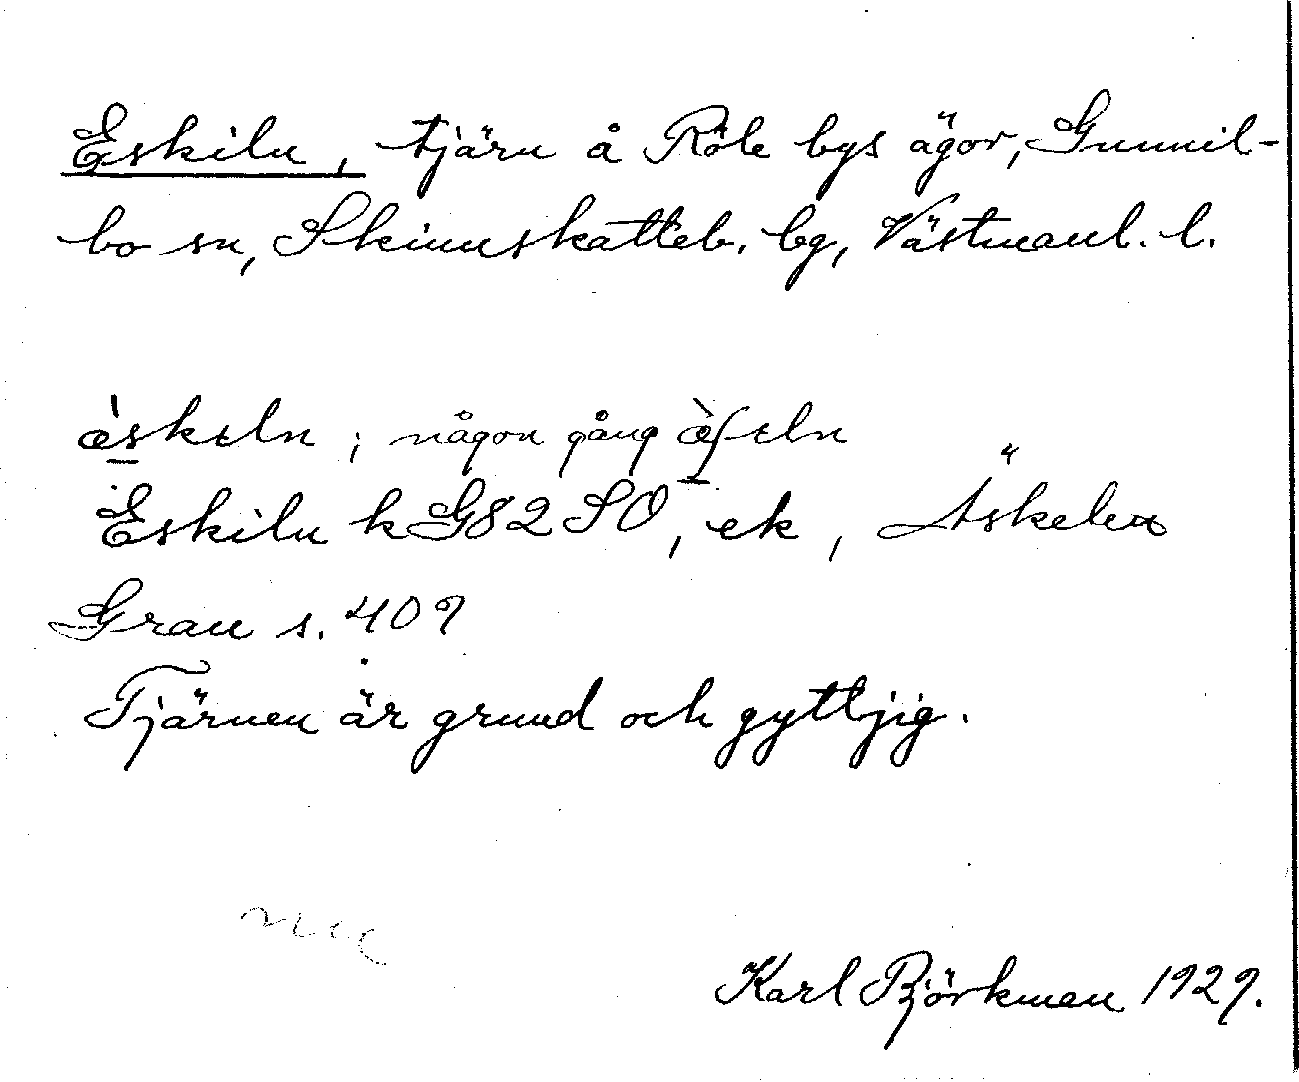 Eskiln, tjärn å Röle bys ägor, Gunnil-
bo sn, Skinnskatteb. bg, Västmanl. l.
æ̀skɛln ; någon gång æ̀ʃɛln
Eskiln k G82SO, ek, Äskelen
Grau s. 409
Tjärnen är grund och gyttjig.
Karl Björkman 1929.